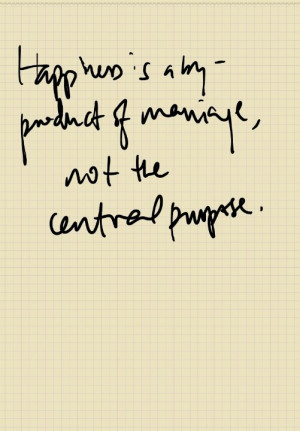 Happiness is a by-
product of marriage,
not the
central purpose.